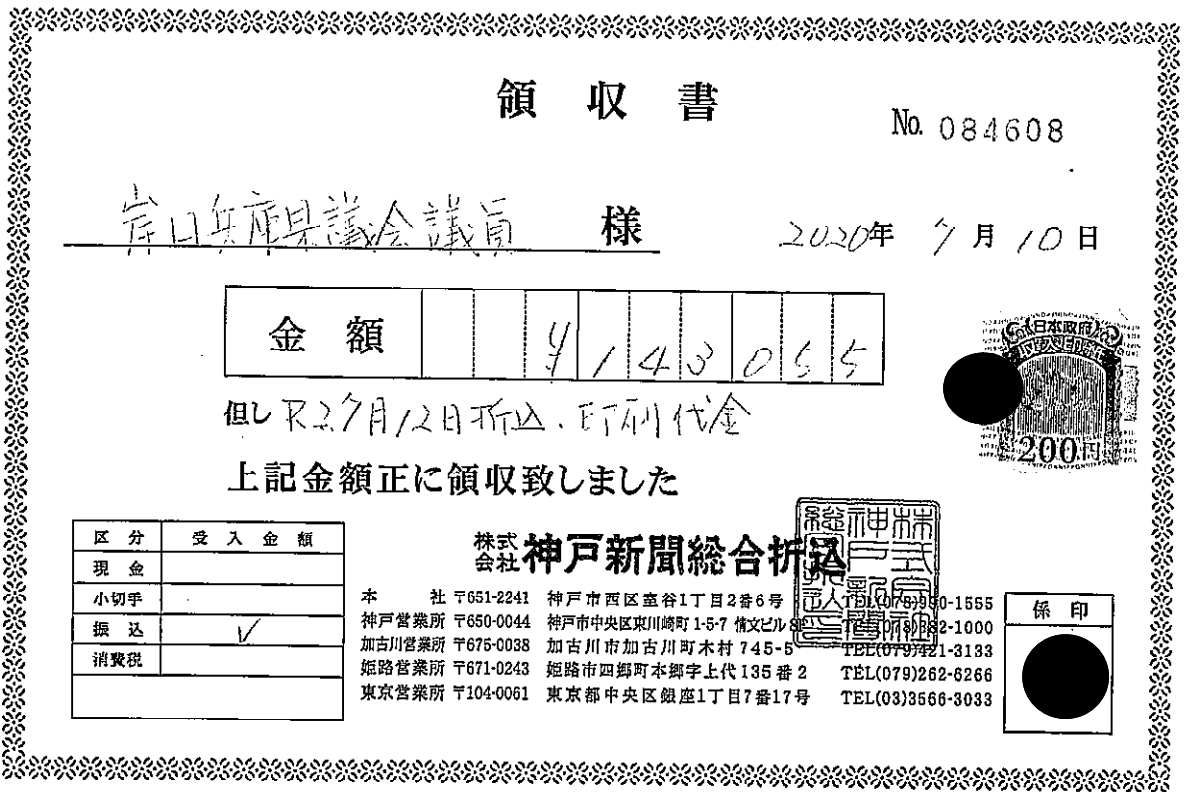 領収書
No. 084608
岸口兵庫県議会議員 様
2020年 7月10日
金額 ¥143055
但し R2.7月12日折込、印刷代金
日本政府
200円
上記金額正に領収致しました
区分 受入金額
現金
小切手
振込 ✓
消費税
株式会社 神戸新聞総合折込
本社 〒651-2241 神戸市西区室谷1丁目2番6号 TEL(078)990-1555
神戸営業所 〒650-0044 神戸市中央区東川崎町1-5-7 情文ビル
加古川営業所 〒675-0038 加古川市加古川町木村745-5 TEL(079)421-3133
姫路営業所 〒671-0243 姫路市四郷町本郷字上代135番2 TEL(079)262-6266
東京営業所 〒104-0061 東京都中央区銀座1丁目7番17号 TEL(03)3566-3033
係印